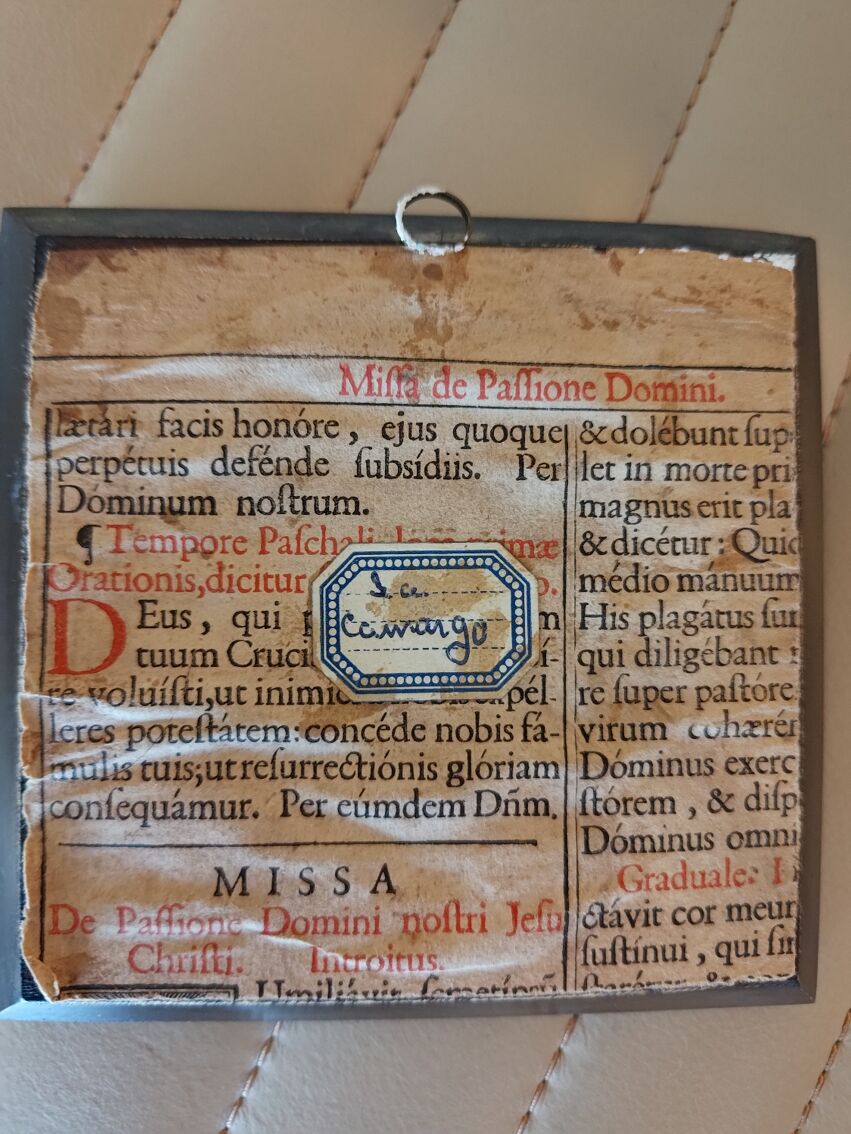 Miſſa de Paſſione Domini.
lætári facis honóre, ejus quoque
perpétuis defénde ſubsídiis. Per
Dóminum noſtrum.
¶ Tempore Paſchali, loco primæ
Orationis, dicitur o.
DEus, qui m
tuum Cruci í-
re voluíſti, ut inimic expél-
leres poteſtátem: concéde nobis fá-
mulis tuis; ut reſurrectiónis glóriam
conſequámur. Per eúmdem Dñm.
MISSA
De Paſſione Domini noſtri Jeſu
Chriſti. Introitus.
Umiliávit ſemetípsũ
& dolébunt ſup
let in morte pri
magnus erit pla
& dicétur: Quid
médio mánuum
His plagátus ſum
qui diligébant
re ſuper paſtóre
virum cohærén
Dóminus exerc
ſtórem, & diſp
Dóminus omni
Graduale. I
ctávit cor meum
ſuſtínui, qui ſim
La
Camargo